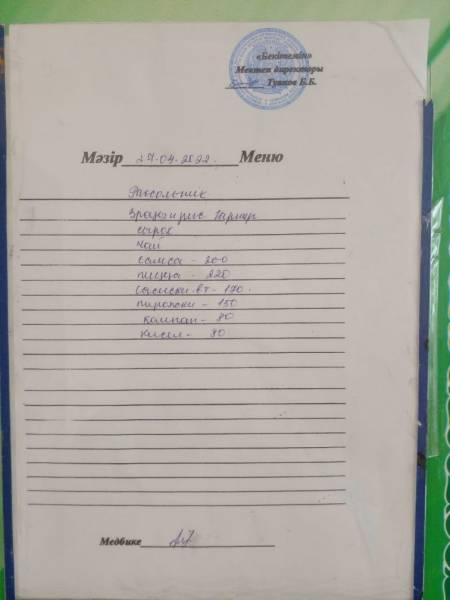 «Бекітемін»
Мектеп директоры
Туяков Б.Б.
Мәзір 27.04.2022 Меню
Рассольник
Зразы рис Гарнир
сырок
чай
Самса - 200
пицца - 220
Сосиски. вт - 170.
пирожки - 150
компот - 80
кисел - 80
Медбике